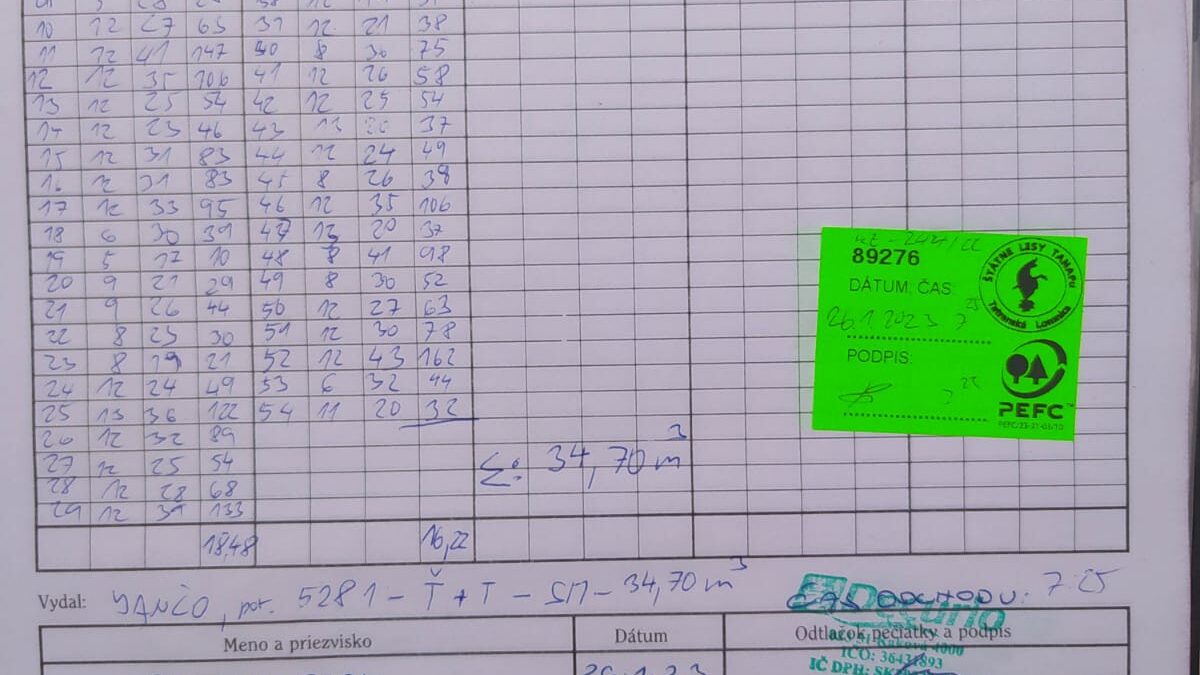 10 12 27 65 39 12 21 38
11 12 41 147 40 8 36 75
12 12 35 106 41 12 26 58
13 12 25 54 42 12 25 54
14 12 23 46 43 13 20 37
15 12 31 83 44 12 24 49
16 12 31 83 45 8 26 39
17 12 33 95 46 12 35 106
18 6 30 39 47 13 20 37
19 5 17 10 48 8 41 98
20 9 21 29 49 8 30 52
21 9 26 44 50 12 27 63
22 8 23 30 51 12 30 78
23 8 19 21 52 12 43 162
24 12 24 49 53 6 32 44
25 13 36 122 54 11 20 32
26 12 32 89
27 12 25 54
28 12 28 68
29 12 39 133
Σ: 34,70 m³
18,48 16,22
89276
ŠTÁTNE LESY TANAPU
Tatranská Lomnica
DÁTUM, ČAS:
26.1.2023 7 25
PODPIS:
PEFC™
Vydal: JANČO, por. 5281 - Ť + T - SM - 34,70 m³
ČAS ODCHODU: 7:25
Meno a priezvisko Dátum Odtlačok pečiatky a podpis
IČ DPH: